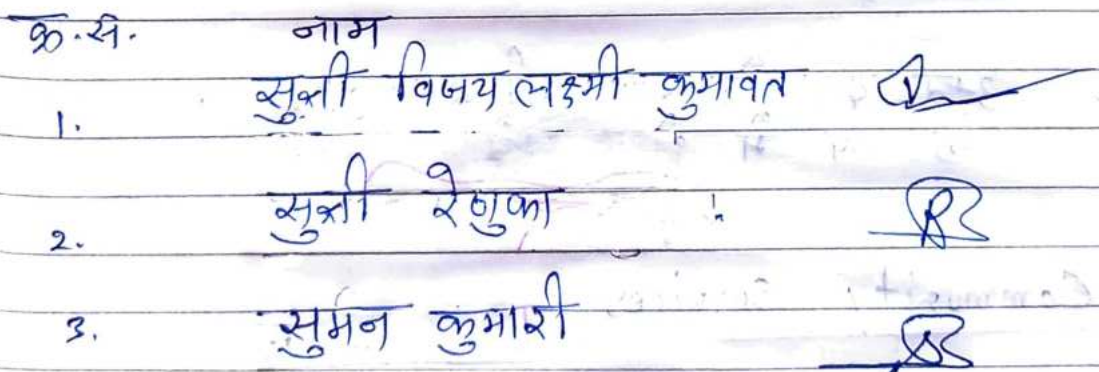 क्र.सं. नाम
1. सुश्री विजय लक्ष्मी कुमावत
2. सुश्री रेणुका
3. सुमन कुमारी